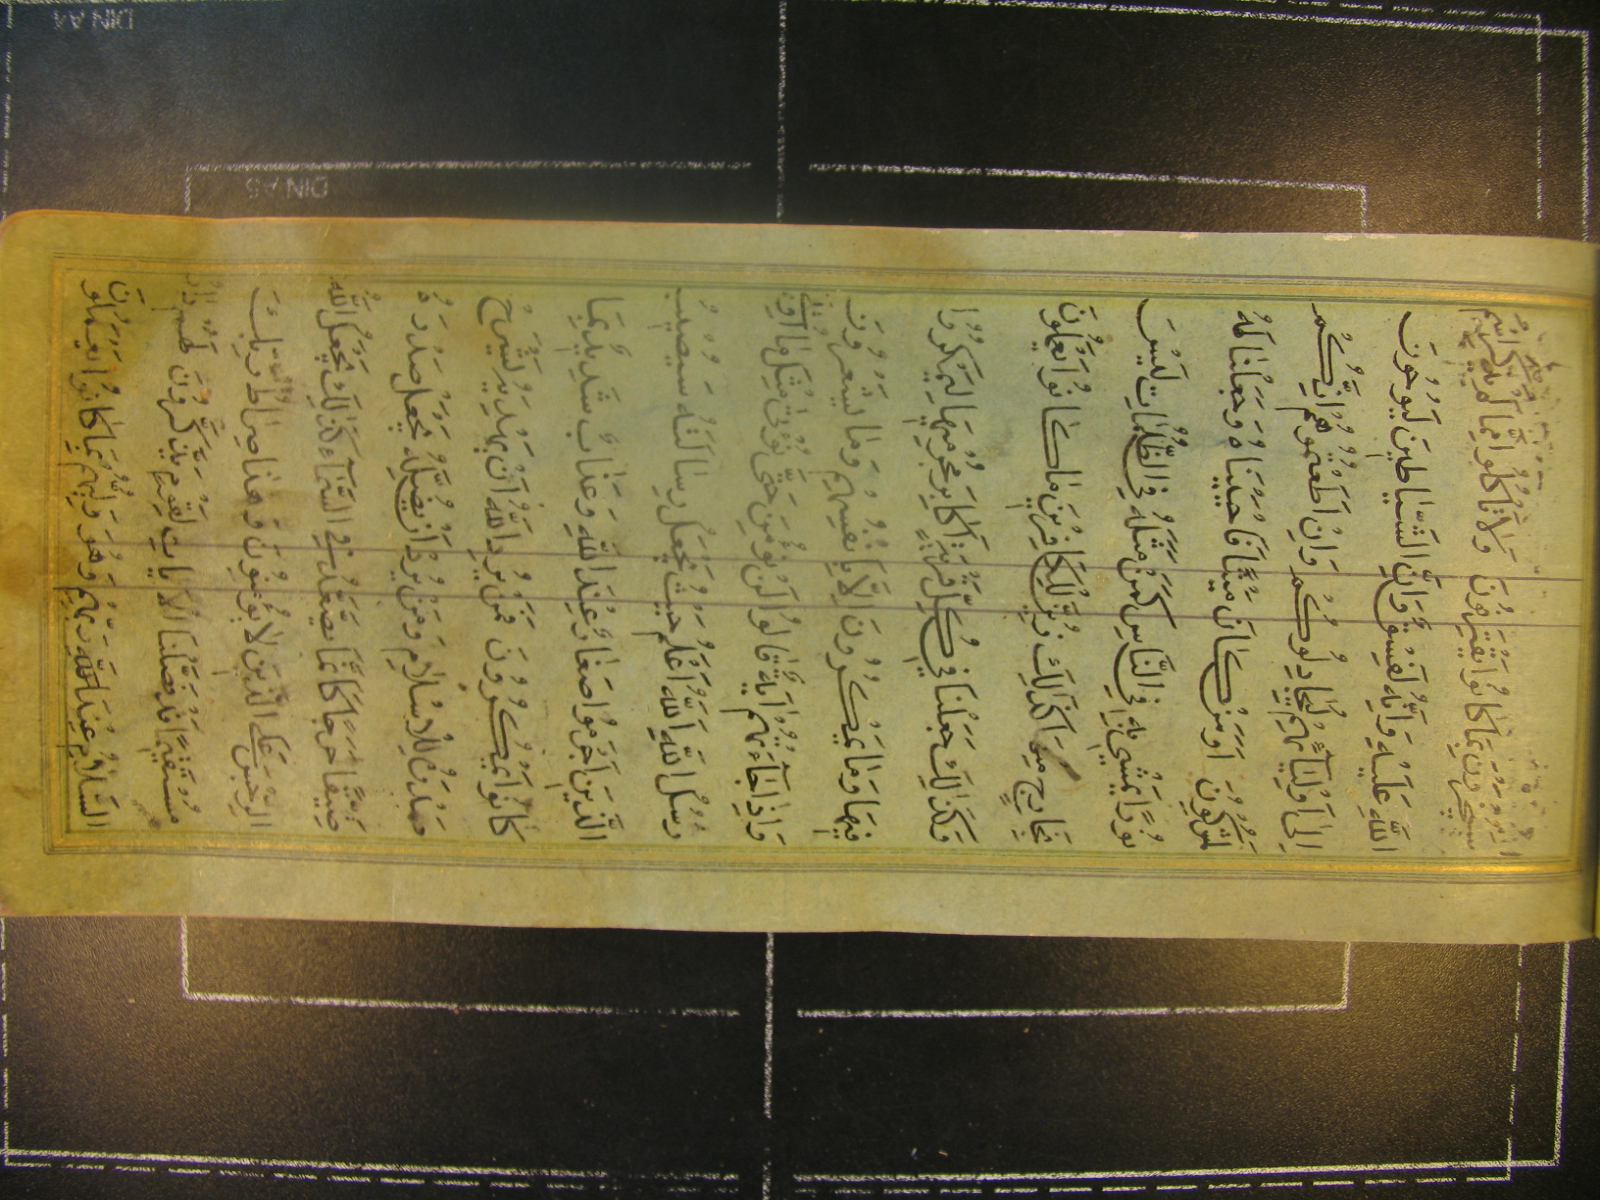 سَيُجْزَوْنَ بِمَا كَانُوا يَقْتَرِفُونَ وَلَا تَأْكُلُوا مِمَّا لَمْ يُذْكَرِ اسْمُ
اللَّهِ عَلَيْهِ وَإِنَّهُ لَفِسْقٌ وَإِنَّ الشَّيَاطِينَ لَيُوحُونَ
إِلَى أَوْلِيَائِهِمْ لِيُجَادِلُوكُمْ وَإِنْ أَطَعْتُمُوهُمْ إِنَّكُمْ
لَمُشْرِكُونَ أَوَمَنْ كَانَ مَيْتًا فَأَحْيَيْنَاهُ وَجَعَلْنَا لَهُ
نُورًا يَمْشِي بِهِ فِي النَّاسِ كَمَنْ مَثَلُهُ فِي الظُّلُمَاتِ لَيْسَ
بِخَارِجٍ مِنْهَا كَذَلِكَ زُيِّنَ لِلْكَافِرِينَ مَا كَانُوا يَعْمَلُونَ
وَكَذَلِكَ جَعَلْنَا فِي كُلِّ قَرْيَةٍ أَكَابِرَ مُجْرِمِيهَا لِيَمْكُرُوا
فِيهَا وَمَا يَمْكُرُونَ إِلَّا بِأَنْفُسِهِمْ وَمَا يَشْعُرُونَ
وَإِذَا جَاءَتْهُمْ آيَةٌ قَالُوا لَنْ نُؤْمِنَ حَتَّى نُؤْتَى مِثْلَ مَا أُوتِيَ
رُسُلُ اللَّهِ اللَّهُ أَعْلَمُ حَيْثُ يَجْعَلُ رِسَالَتَهُ سَيُصِيبُ
الَّذِينَ أَجْرَمُوا صَغَارٌ عِنْدَ اللَّهِ وَعَذَابٌ شَدِيدٌ بِمَا
كَانُوا يَمْكُرُونَ فَمَنْ يُرِدِ اللَّهُ أَنْ يَهْدِيَهُ يَشْرَحْ
صَدْرَهُ لِلْإِسْلَامِ وَمَنْ يُرِدْ أَنْ يُضِلَّهُ يَجْعَلْ صَدْرَهُ
ضَيِّقًا حَرَجًا كَأَنَّمَا يَصَّعَّدُ فِي السَّمَاءِ كَذَلِكَ يَجْعَلُ اللَّهُ
الرِّجْسَ عَلَى الَّذِينَ لَا يُؤْمِنُونَ وَهَذَا صِرَاطُ رَبِّكَ
مُسْتَقِيمًا قَدْ فَصَّلْنَا الْآيَاتِ لِقَوْمٍ يَذَّكَّرُونَ لَهُمْ دَارُ
السَّلَامِ عِنْدَ رَبِّهِمْ وَهُوَ وَلِيُّهُمْ بِمَا كَانُوا يَعْمَلُونَ
DIN A4
DIN A5